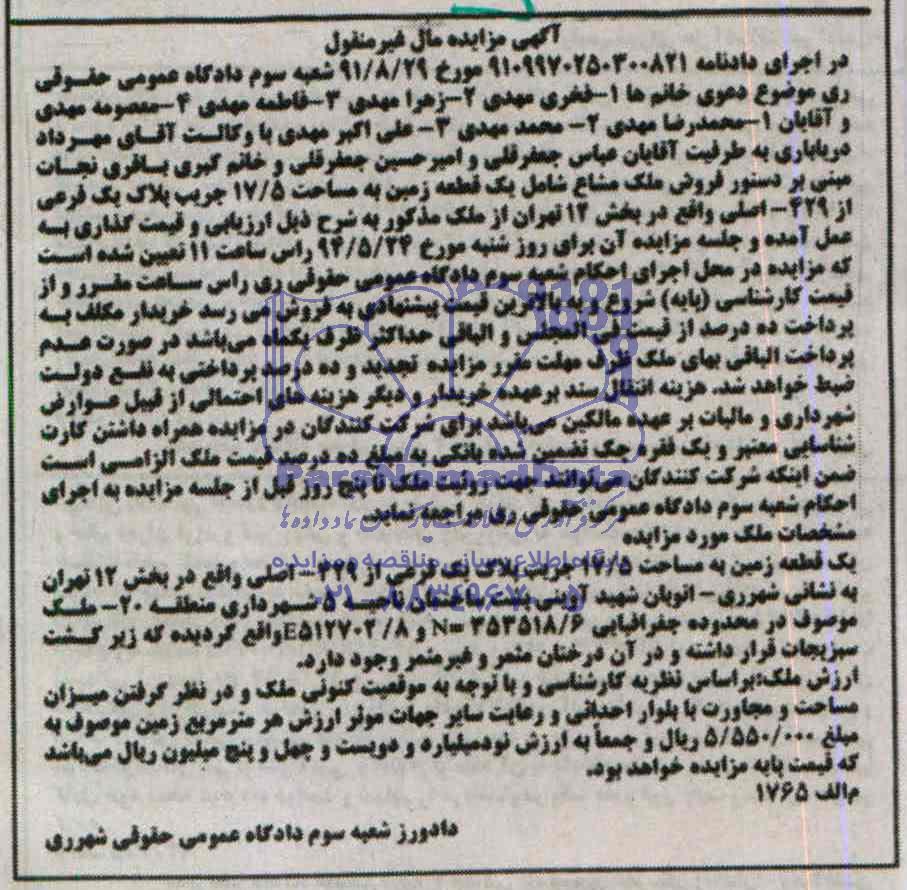 آگهی مزایده مال غیرمنقول
در اجرای دادنامه ۹۱۰۹۹۷۰۲۵۰۳۰۰۸۲۱ مورخ ۹۱/۸/۲۹ شعبه سوم دادگاه عمومی حقوقی
ری موضوع دعوی خانم ها ۱-فخری مهدی ۲-زهرا مهدی ۳-فاطمه مهدی ۴-معصومه مهدی
و آقایان ۱-محمدرضا مهدی ۲- محمد مهدی ۳- علی اکبر مهدی با وکالت آقای مهرداد
دریاباری به طرفیت آقایان عباس جعفرقلی و امیرحسین جعفرقلی و خانم کبری باقری نجات
مبنی بر دستور فروش ملک مشاع شامل یک قطعه زمین به مساحت ۱۷/۵ جریب پلاک یک فرعی
از ۴۲۹- اصلی واقع در بخش ۱۲ تهران از ملک مذکور به شرح ذیل ارزیابی و قیمت گذاری به
عمل آمده و جلسه مزایده آن برای روز شنبه مورخ ۹۴/۵/۲۴ راس ساعت ۱۱ تعیین شده است
که مزایده در محل اجرای احکام شعبه سوم دادگاه عمومی حقوقی ری راس ساعت مقرر و از
قیمت کارشناسی (پایه) شروع و به بالاترین قیمت پیشنهادی به فروش می رسد خریدار مکلف به
پرداخت ده درصد از قیمت فی المجلس و الباقی حداکثر ظرف یکماه می‌باشد در صورت عدم
پرداخت الباقی بهای ملک ظرف مهلت مقرر مزایده تجدید و ده درصد پرداختی به نفع دولت
ضبط خواهد شد. هزینه انتقال سند برعهده خریدار و دیگر هزینه های احتمالی از قبیل عوارض
شهرداری و مالیات بر عهده مالکین می‌باشد برای شرکت کنندگان در مزایده همراه داشتن کارت
شناسایی معتبر و یک فقره چک تضمین شده بانکی به مبلغ ده درصد قیمت ملک الزامی است
ضمن اینکه شرکت کنندگان می‌توانند جهت رویت ملک تا پنج روز قبل از جلسه مزایده به اجرای
احکام شعبه سوم دادگاه عمومی حقوقی ری مراجعه نماید.
مشخصات ملک مورد مزایده
یک قطعه زمین به مساحت ۱۷/۵ جریب پلاک یک فرعی از ۴۲۹- اصلی واقع در بخش ۱۲ تهران
به نشانی شهرری- اتوبان شهید آوینی پشت ساختمان ناحیه ۵ شهرداری منطقه ۲۰- ملک
موصوف در محدوده جغرافیایی N= ۳۵۳۵۱۸/۶ و E۵۱۲۷۰۲/۸ واقع گردیده که زیر کشت
سبزیجات قرار داشته و در آن درختان مثمر و غیرمثمر وجود دارد.
ارزش ملک:براساس نظریه کارشناسی و با توجه به موقعیت کنونی ملک و در نظر گرفتن میزان
مساحت و مجاورت با بلوار احداثی و رعایت سایر جهات موثر ارزش هر مترمربع زمین موصوف به
مبلغ ۵/۵۵۰/۰۰۰ ریال و جمعاً به ارزش نودمیلیارد و دویست و چهل و پنج میلیون ریال می‌باشد
که قیمت پایه مزایده خواهد بود.
م/الف ۱۷۶۵
دادورز شعبه سوم دادگاه عمومی حقوقی شهرری
ParsNamadData
پایگاه اطلاع رسانی مناقصه و مزایده
۰۲۱-۸۸۳۴۹۶۷۰-۵